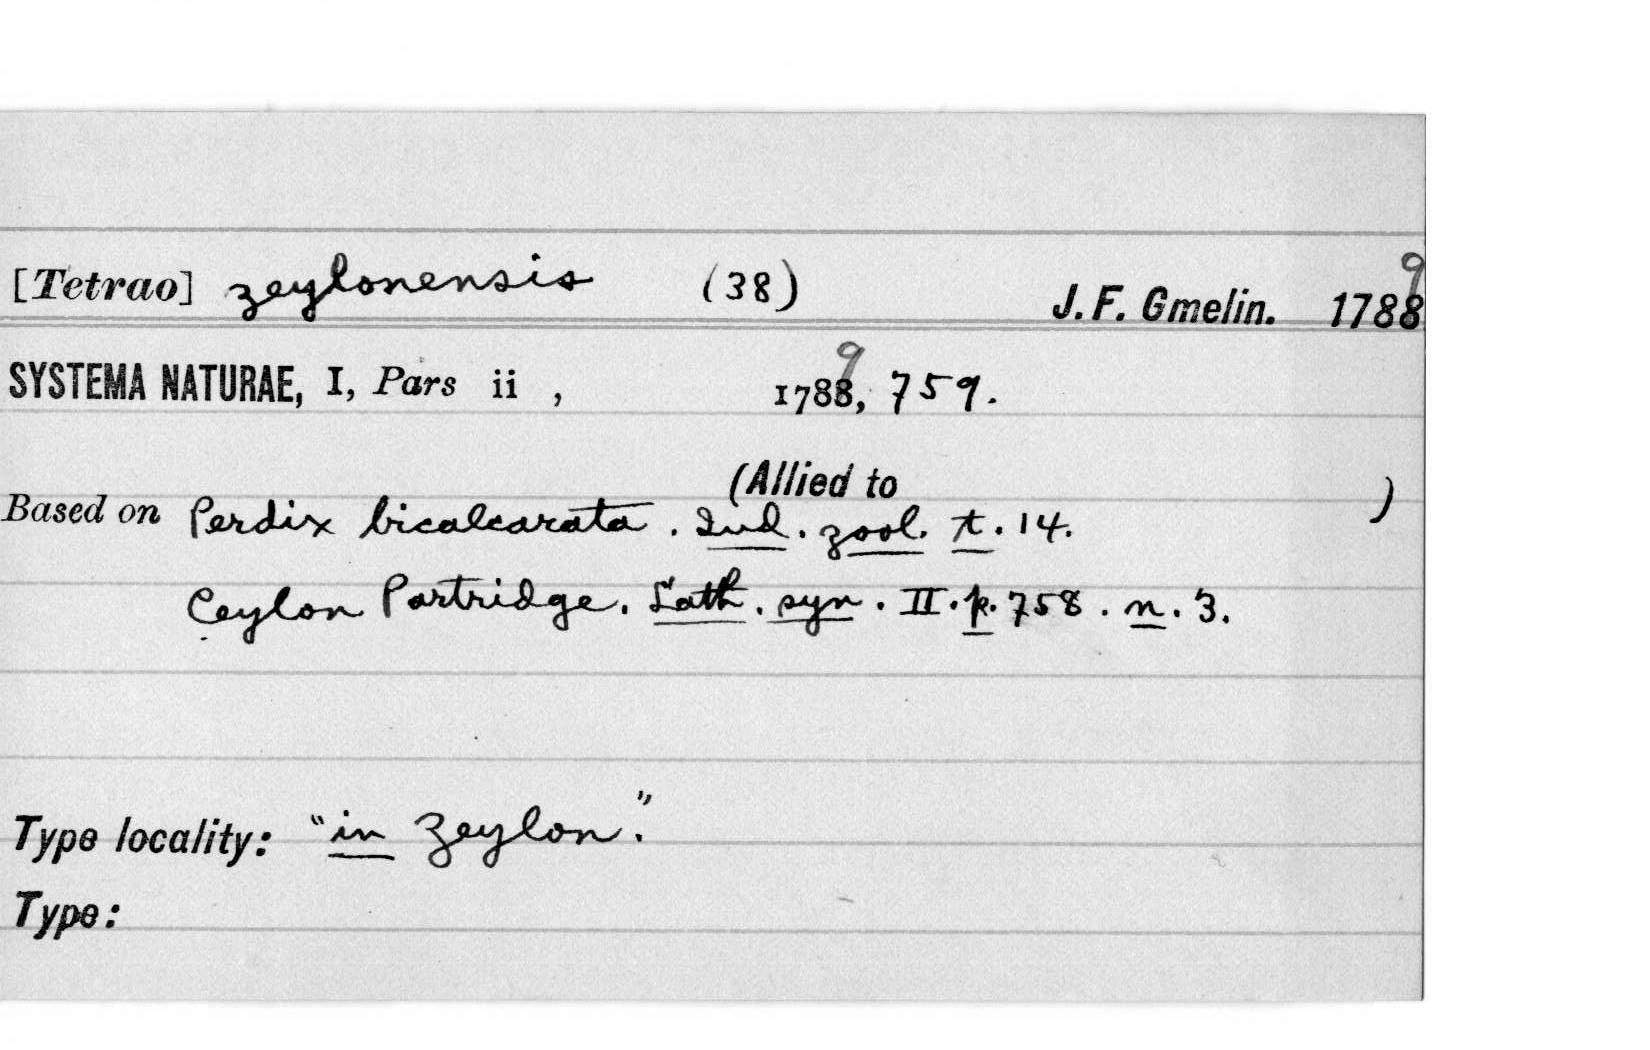 [Tetrao] zeylonensis (38) J. F. Gmelin. 1788 9
SYSTEMA NATURAE, I, Pars ii , 1788, 9 759.
(Allied to )
Based on Perdix bicalcarata. Ind. zool. t. 14.
Ceylon Partridge. Lath. syn. II. p. 758. n. 3.
Type locality: "in Zeylon."
Type: